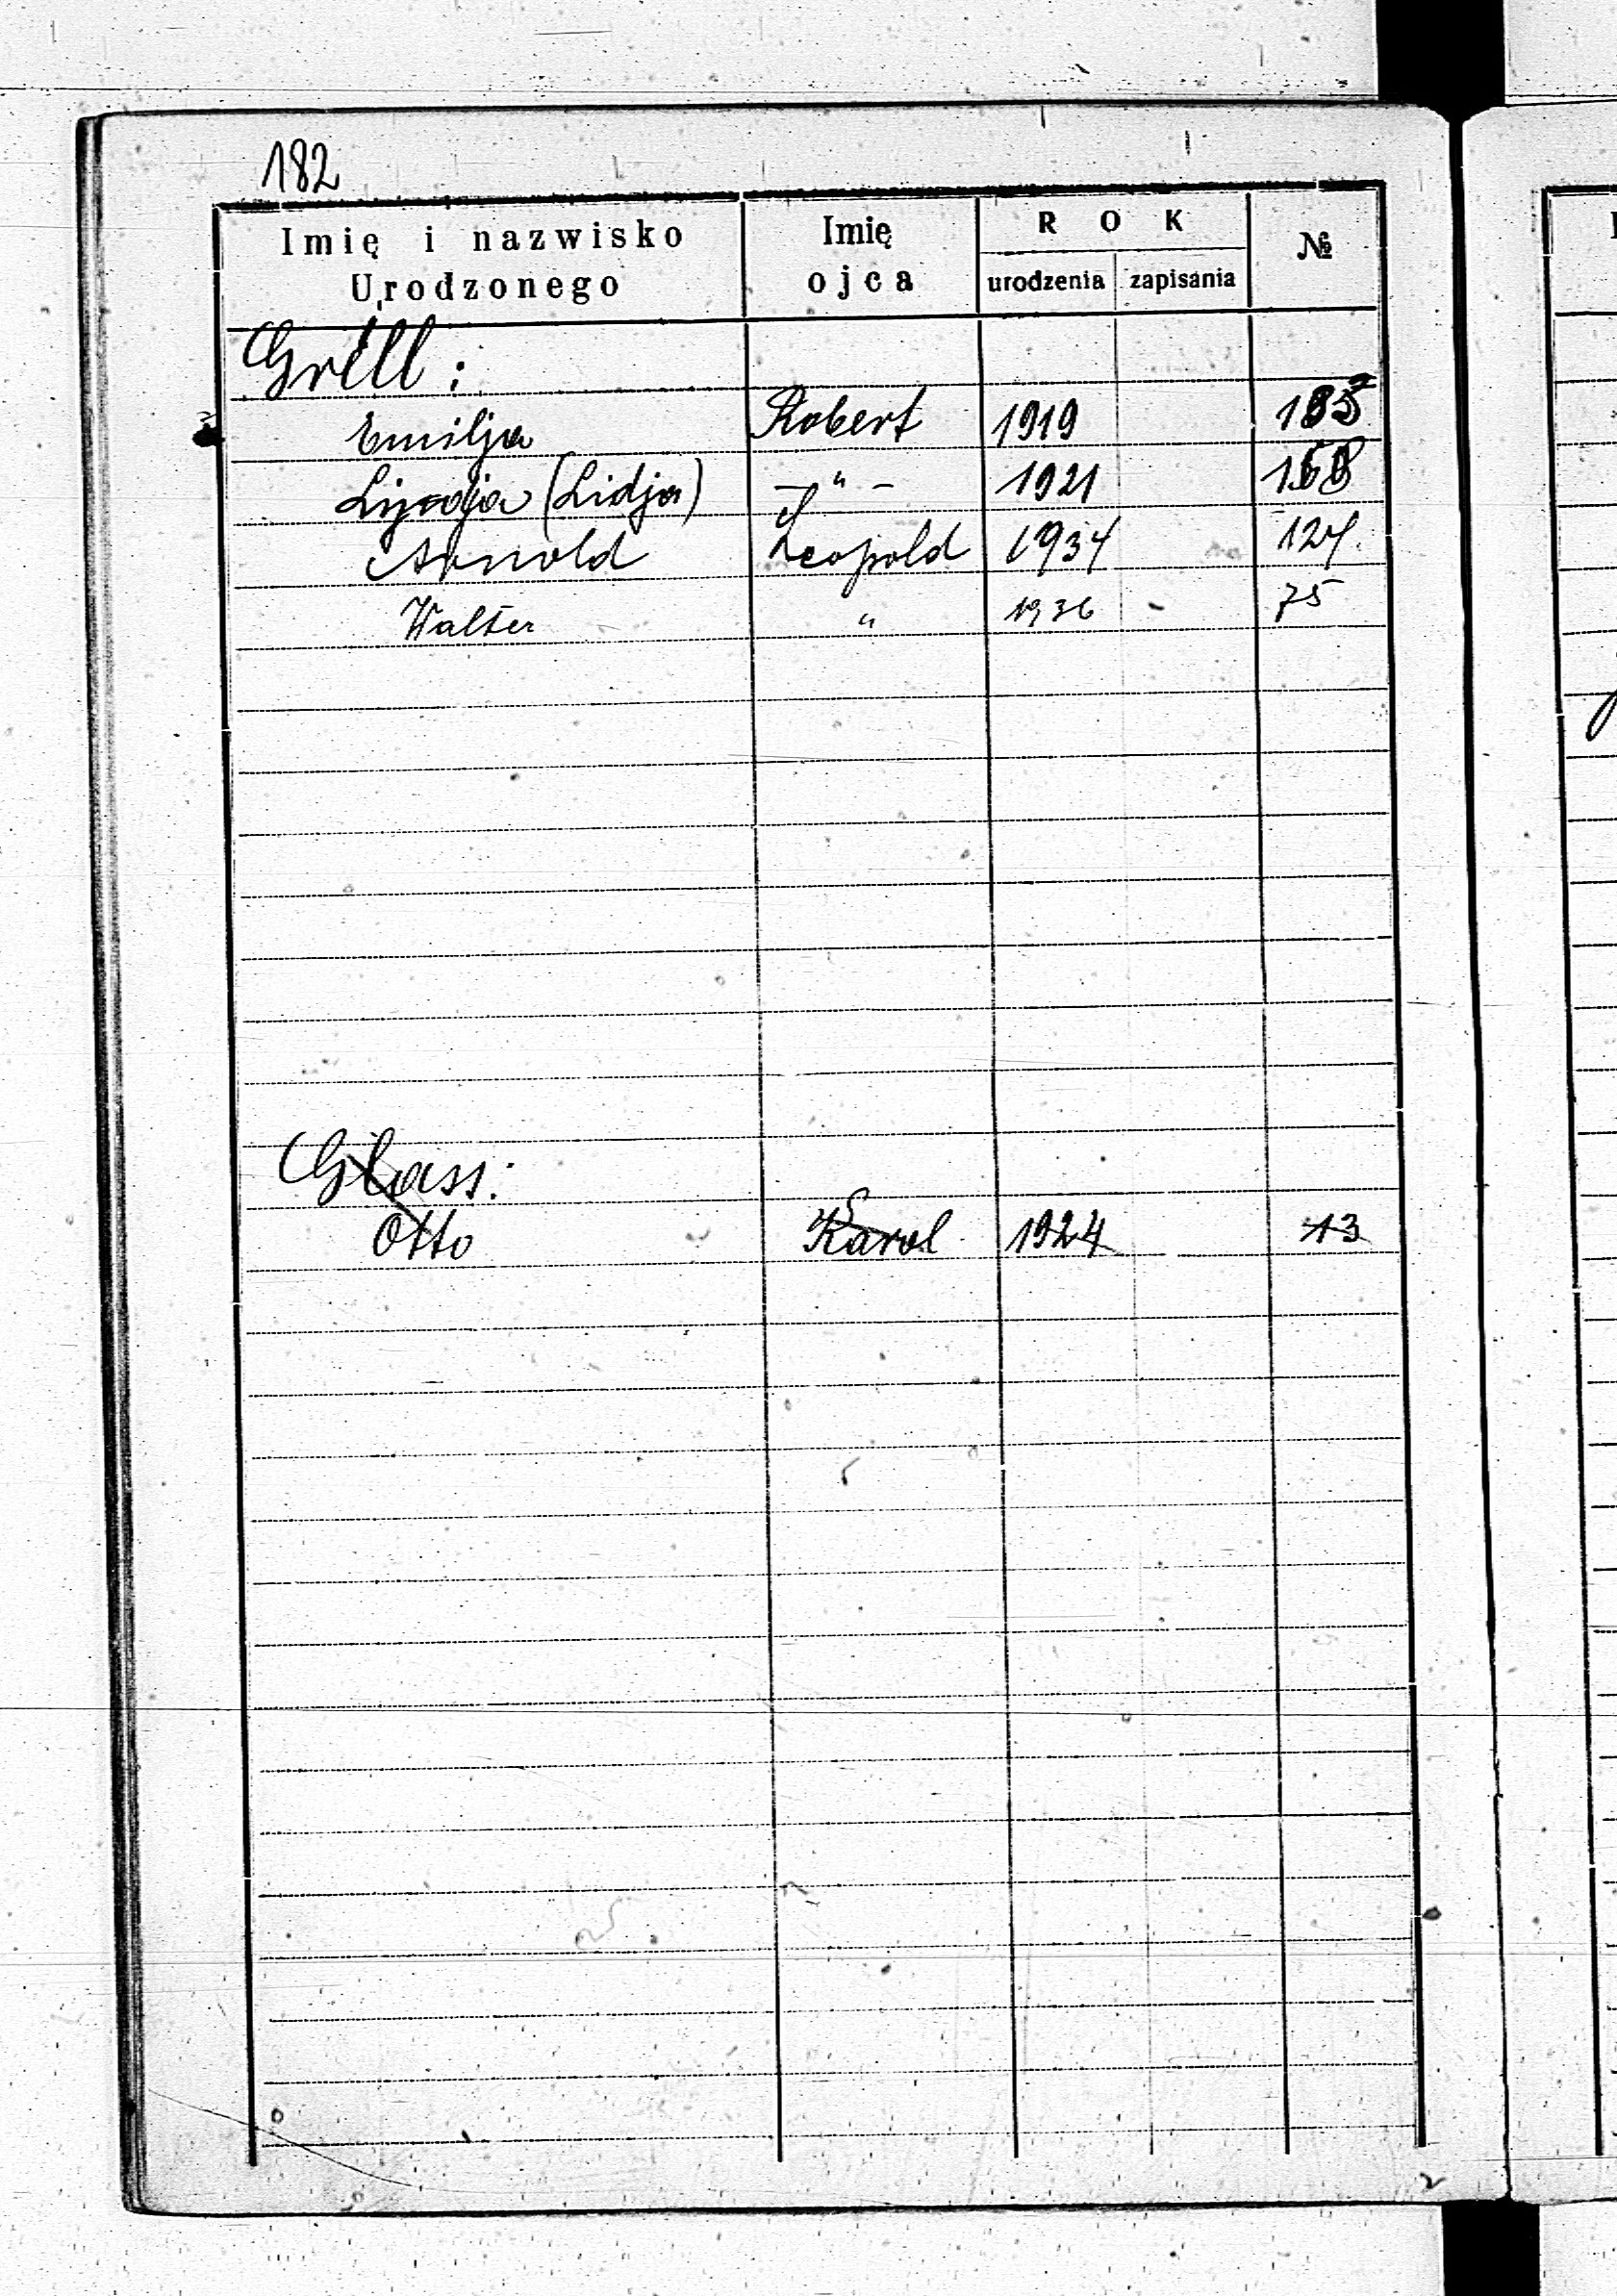 182
Imię i nazwisko Urodzonego Imię ojca ROK urodzenia zapisania №
Grill:
Emilja Robert 1919
Lijedja (Lidja) — " — 1921 168
Arnold Leopold 1934 124.
Walter " 1936 - 75
Glass:
Otto Karol 1924 13